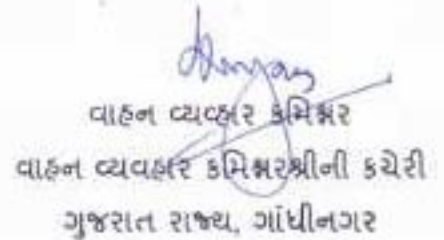 વાહન વ્યવ્હાર કમિશ્નર
વાહન વ્યવહાર કમિશ્નરશ્રીની કચેરી
ગુજરાત રાજ્ય, ગાંધીનગર